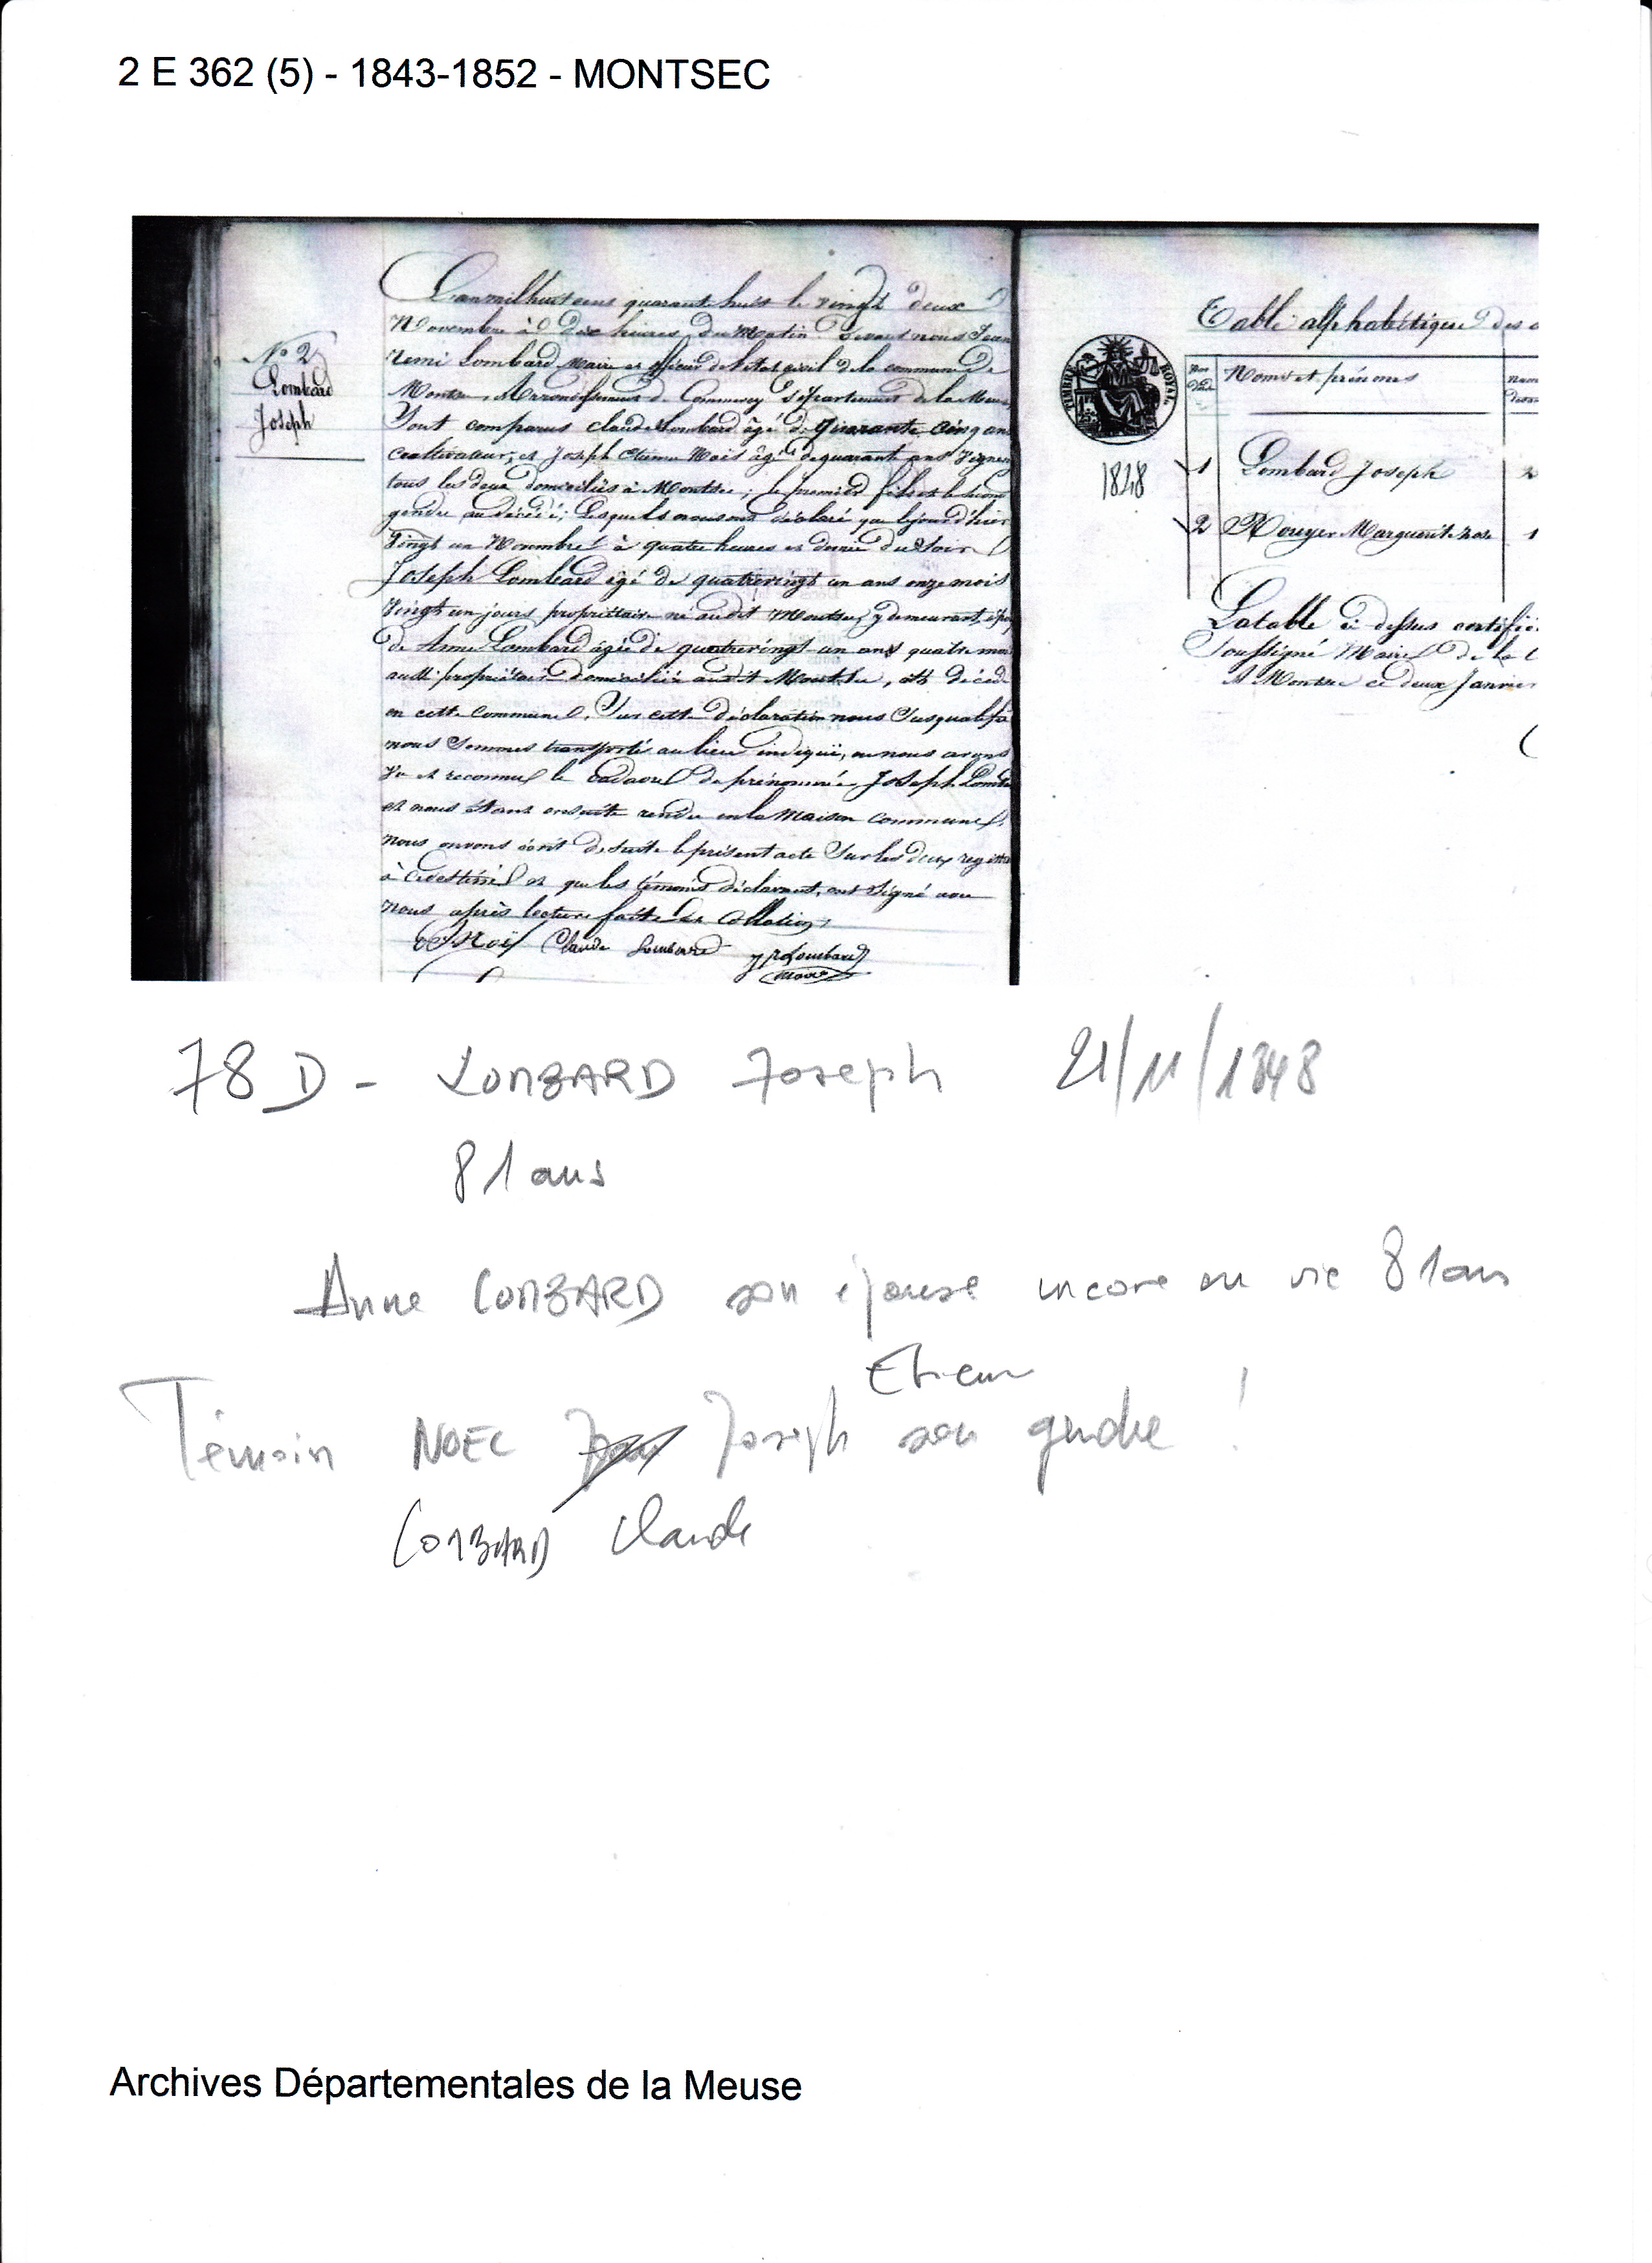 2 E 362 (5) - 1843-1852 - MONTSEC
N° 2
Lombard
Joseph
L'an mil huit cens quarante huit le vingt deux
Novembre à dix heures du Matin devant nous Jean
remi Lombard Maire et officier de l'état civil de la commune de
Montsec, Arrondissement de Commercy Département de la Meuse
Sont comparus claude Lombard âgé de quarante cinq ans
Cultivateur, et Joseph Etienne Nois âgé de quarante ans Vigner
tous les deux domiciliés à Montsec; le premier fils et le second
gendre au décédé; Lesquels nous ont déclaré que le jour d'hier
Vingt un Novembre à quatre heures et demie du Soir
Joseph Lombard âgé de quatrevingt un ans onze mois
Vingt un jours propriétaire né audit Montsec, y demeurant, époux
de Anne Lombard âgée de quatrevingt un ans quatre mois
aussi propriétaire domiciliée audit Montsec, est décédé
en cette commune. Sur cette déclaration nous Susqualifié
nous Sommes transportés au lieu indiqué, ou nous avons
Vu et reconnu le Cadavre de prénommé Joseph Lomba
et nous étant ensuite rendu en la Maison Commune,
nous avons écrit de suite le présent acte Sur les deux registre
à ce destiné et que les témoins déclarant, ont Signé avec
nous après lecture faite et Collation,
Noïs Claude Lombard J R Lombard
Maire
TIMBRE ROYAL
1848
Table alphabétique des
Noms et prénoms
1 Lombard Joseph 2
2 Rouyer Marguerite rose 1
La table ci dessus certifié
Soussigné Maire de la C
A Montsec ce deux Janvier
78 D - LOMBARD Joseph 21/11/1848
81 ans
Anne LOMBARD son épouse encore en vie 81 ans
Etienne
Témoin NOEL Joseph son gendre !
LOMBARD Claude
Archives Départementales de la Meuse